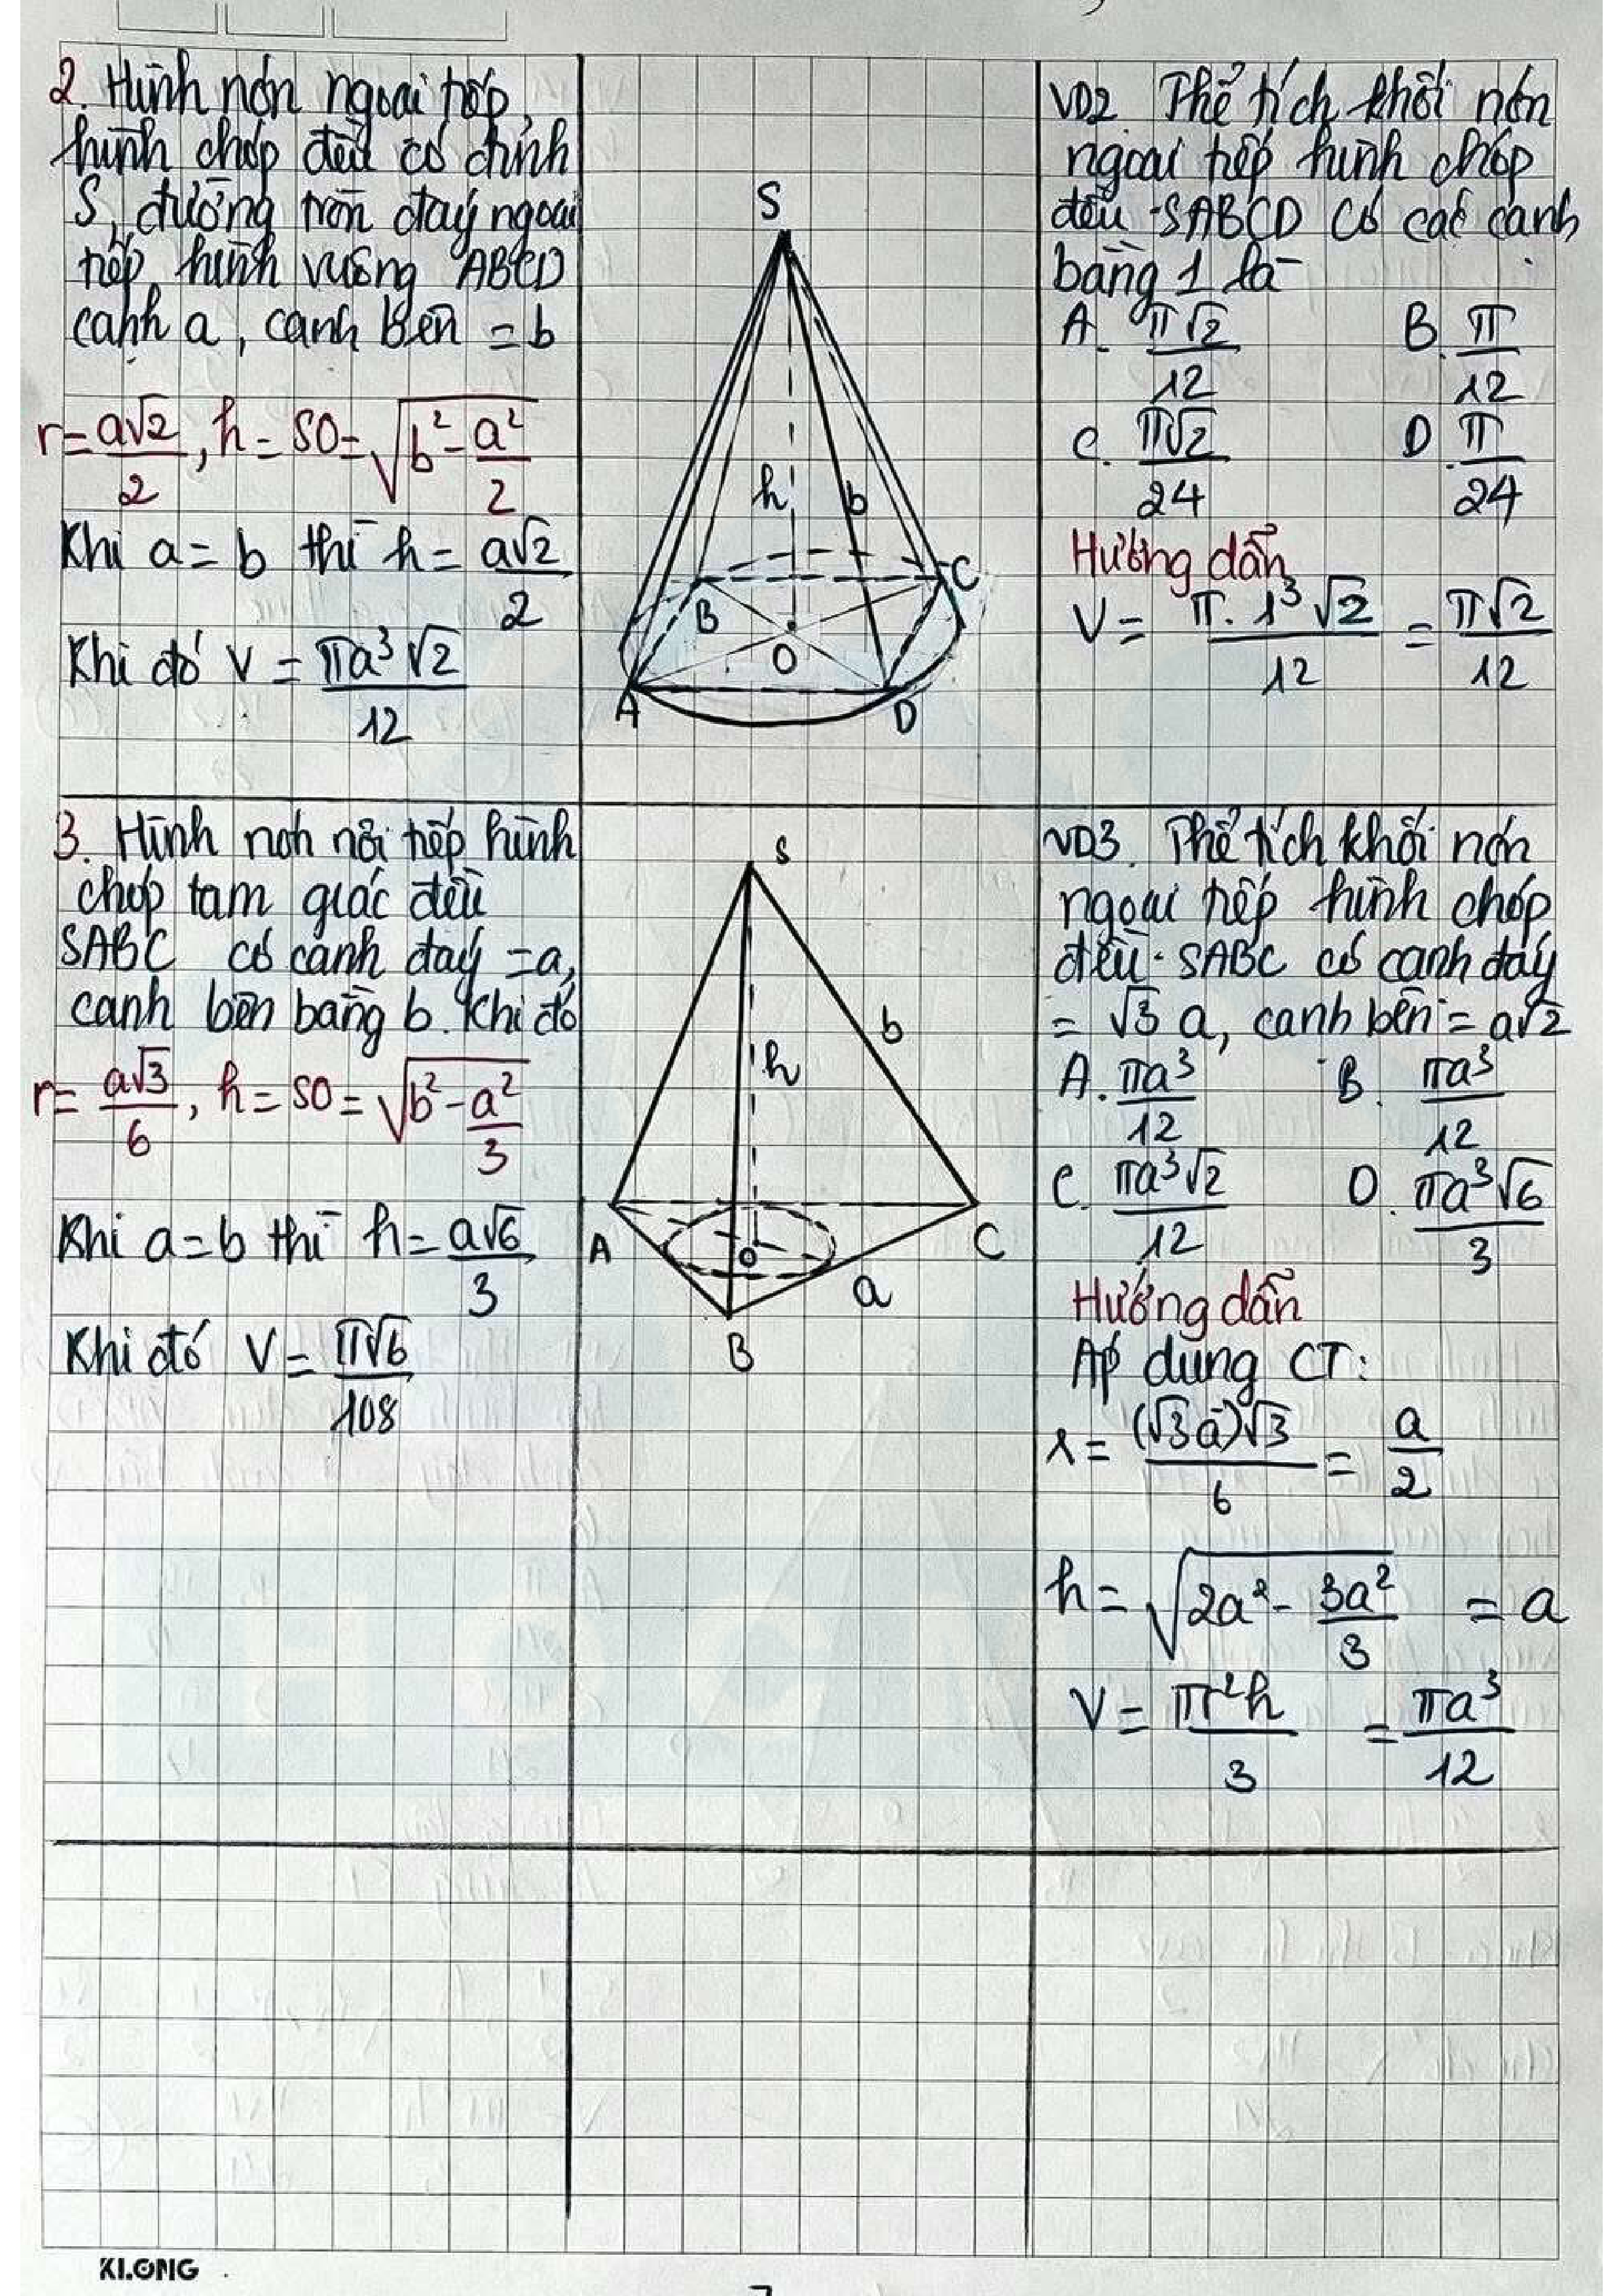 2. Hình nón ngoại tiếp
hình chóp đều có đỉnh
S, đường tròn đáy ngoại
tiếp hình vuông ABCD
cạnh a, cạnh bên = b
r = a√2/2, h = SO = √(b² - a²/2)
Khi a = b thì h = a√2/2
Khi đó V = πa³√2/12
S
h
b
B
C
O
A
D
VD2. Thể tích khối nón
ngoại tiếp hình chóp
đều SABCD có các cạnh
bằng 1 là
A. π√2/12 B. π/12
C. π√2/24 D. π/24
Hướng dẫn
V = π.1³√2/12 = π√2/12
3. Hình nón nội tiếp hình
chóp tam giác đều
SABC có cạnh đáy = a,
cạnh bên bằng b. Khi đó
r = a√3/6, h = SO = √(b² - a²/3)
Khi a = b thì h = a√6/3
Khi đó V = π√6/108
S
b
h
A
O
C
a
B
VD3. Thể tích khối nón
ngoại tiếp hình chóp
đều SABC có cạnh đáy
= √3 a, cạnh bên = a√2
A. πa³/12 B. πa³/12
C. πa³√2/12 D. πa³√6/3
Hướng dẫn
Áp dụng CT:
r = (√3a)√3/6 = a/2
h = √(2a² - 3a²/3) = a
V = πr²h/3 = πa³/12
KLONG